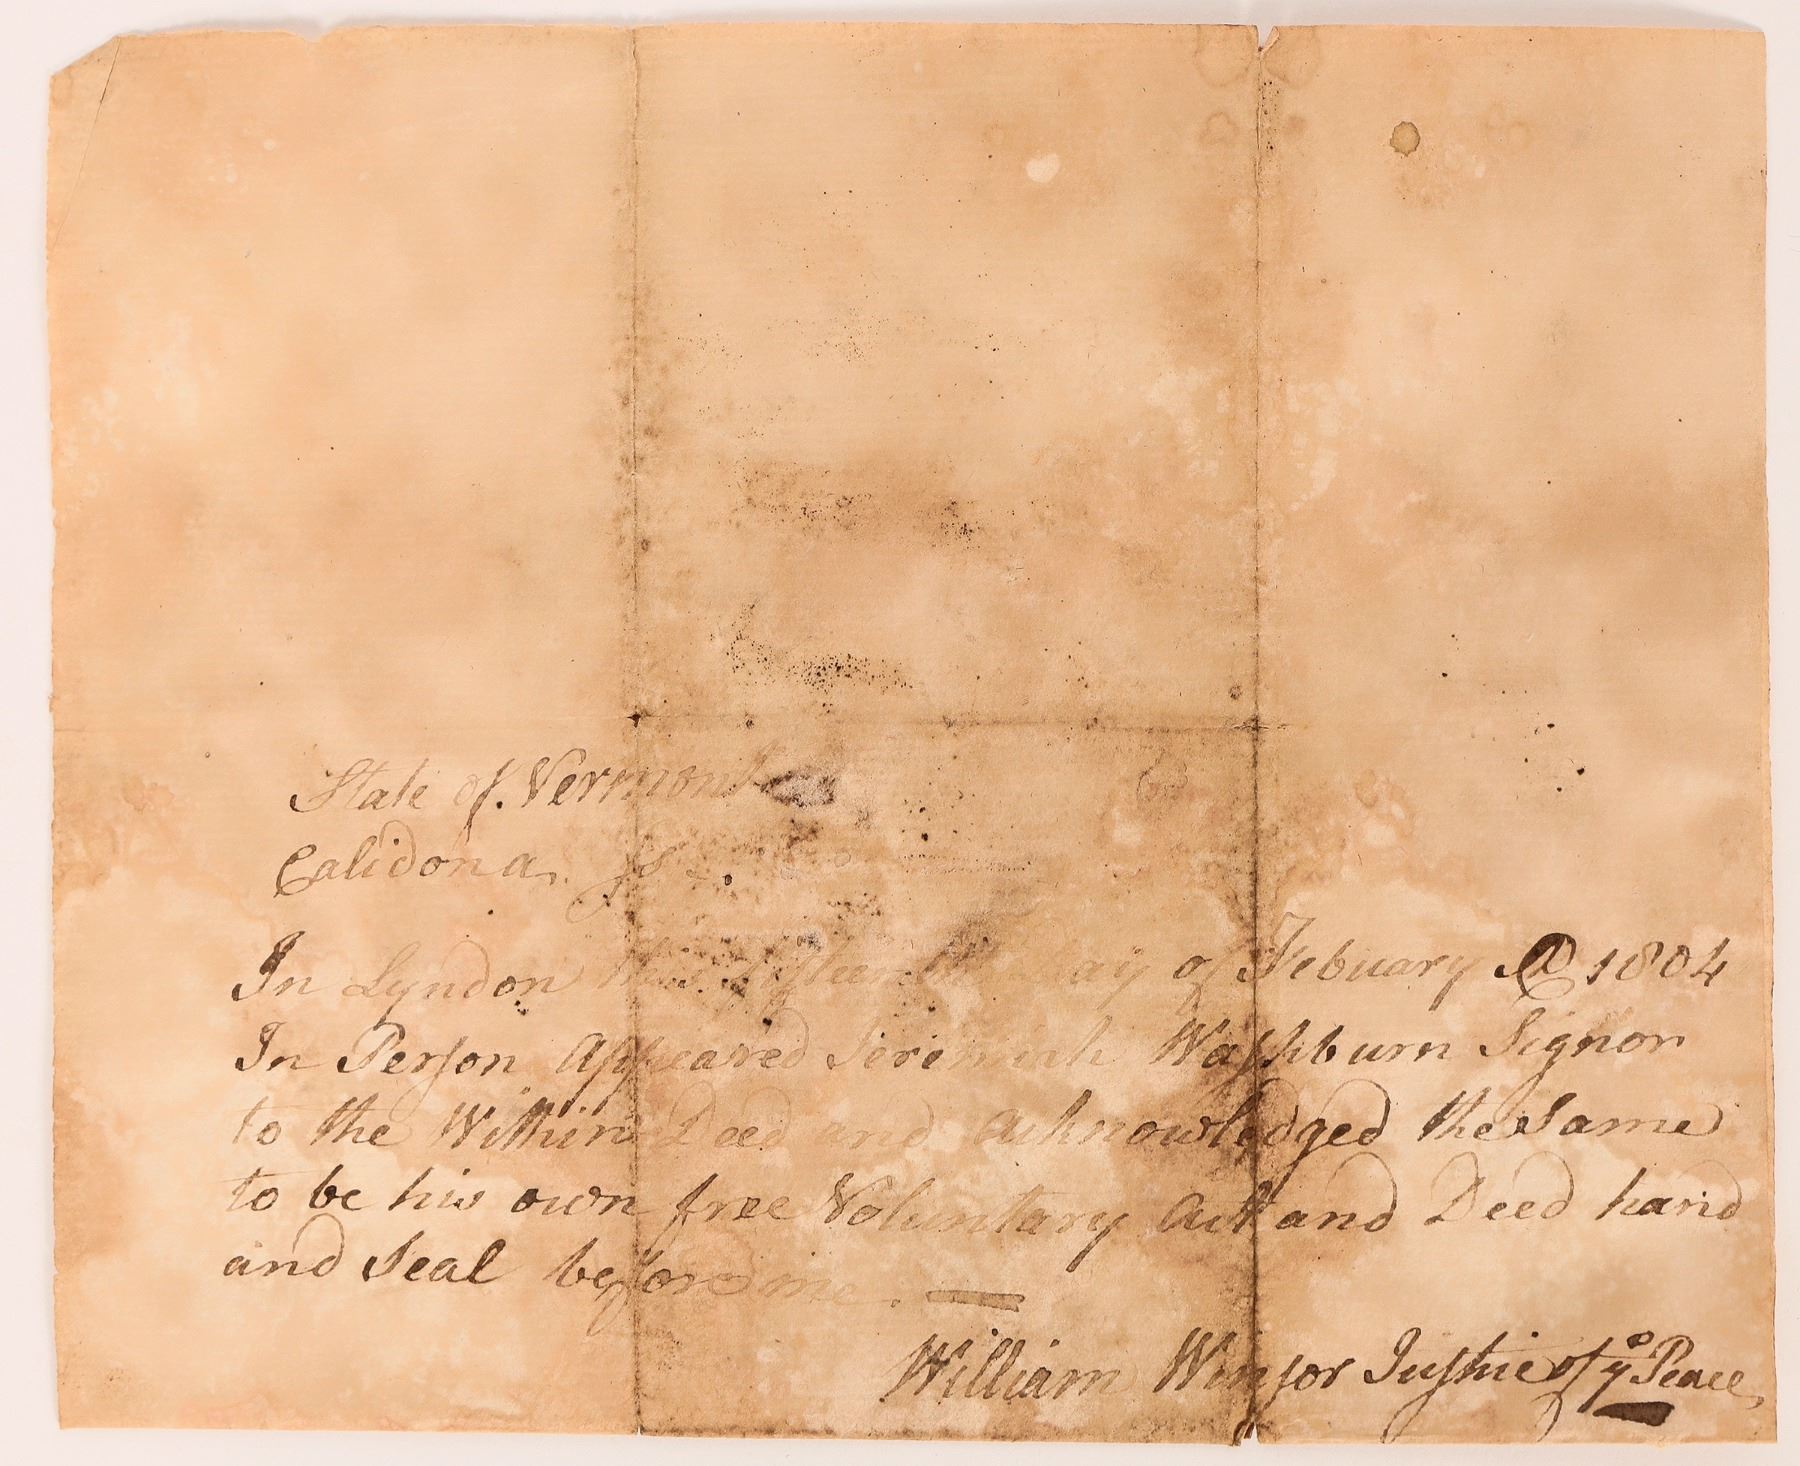 State of Vermont
Calidona ſs
In Lyndon this day of Febuary AD 1804
In Perſon Appeared Jeremiah Waſhburn Signor
to the Within Deed and Acknowledged the Same
to be his own free Voluntary Act and Deed hand
and Seal before me. —
William Winſor Juſtice of yᵉ Peace